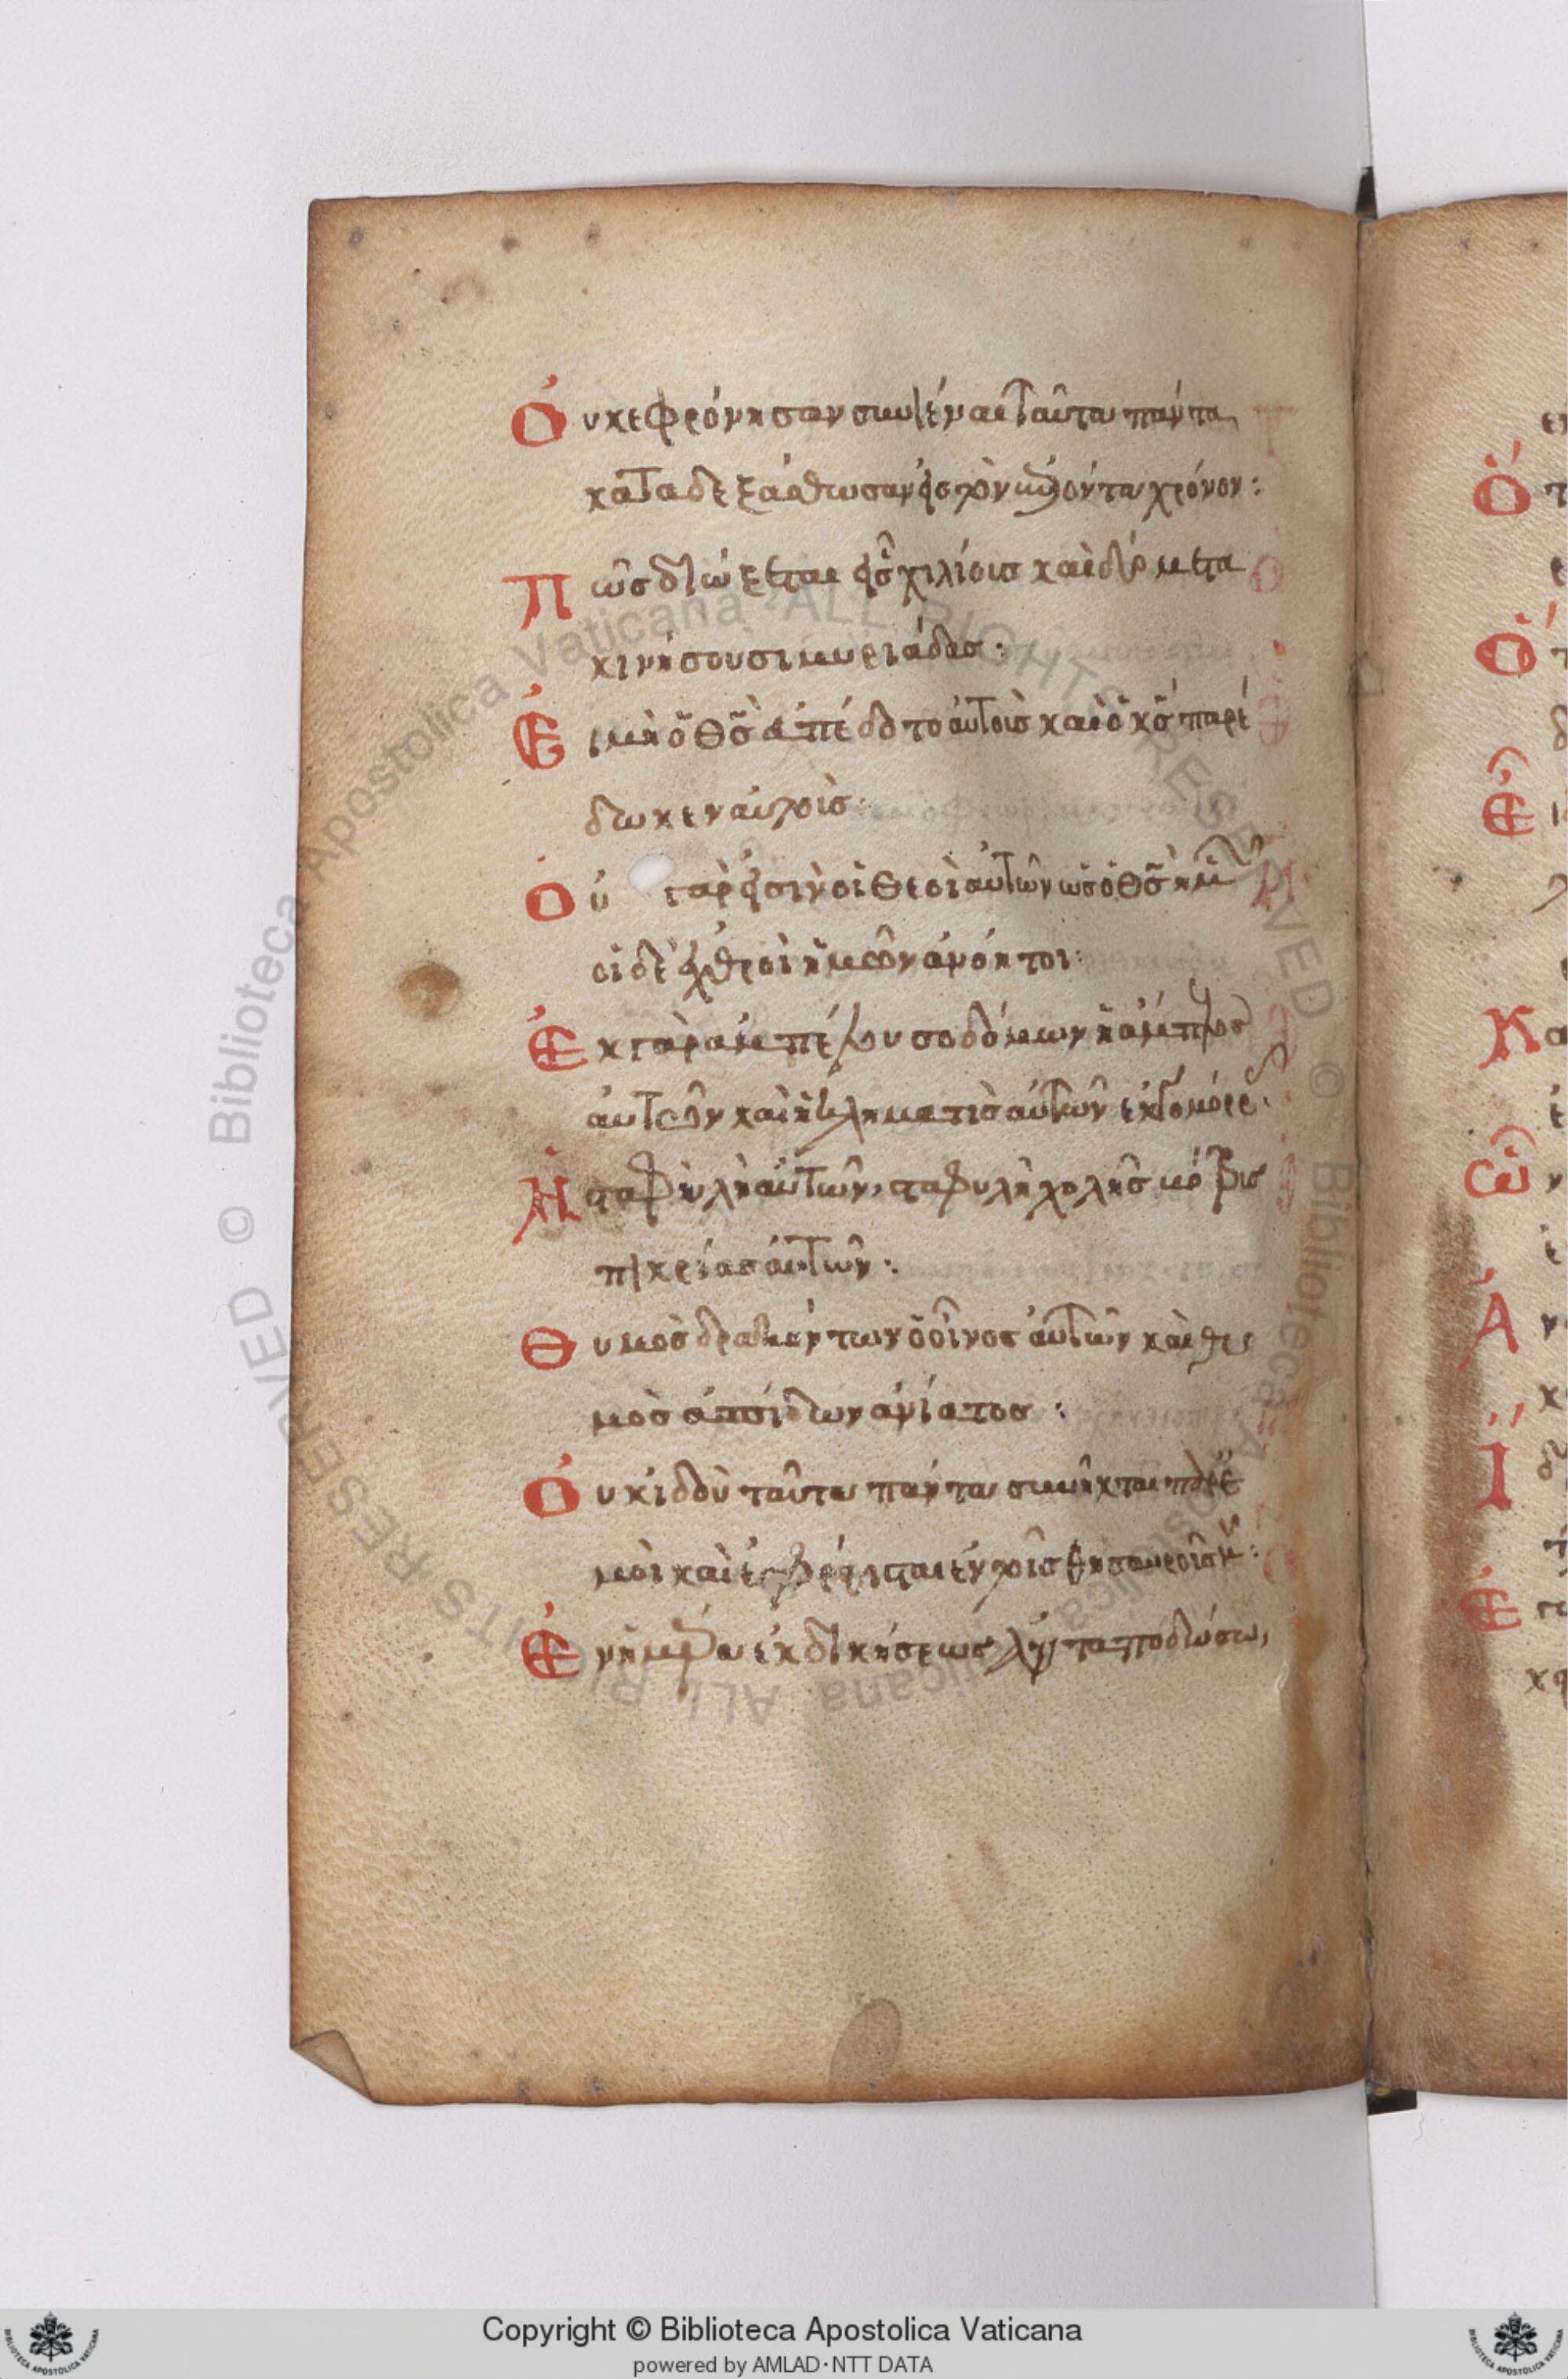 Οὐκ ἐφρόνησαν συνιέναι ταῦτα πάντα
καταδεξάσθωσαν εἰς τὸν ἐπιόντα χρόνον:
Πῶς διώξεται εἷς χιλίους καὶ δύο μετα
κινήσουσι μυριάδας:
Εἰ μὴ ὁ θσ ἀπέδοτο αὐτοὺς καὶ ὁ κσ παρέ
δωκεν αὐτοὺς:
Οὐ γαρ εἰσὶν οἱ θεοὶ αὐτῶν ὡς ὁ θσ ἡμῶν
οἱ δὲ ἐχθροὶ ἡμῶν ἀνόητοι:
Ἐκ γὰρ ἀμπέλου σοδόμων ἡ ἄμπελος
αὐτῶν καὶ ἡ κληματὶς αὐτῶν ἐκ γομόρρας:
Ἡ σταφυλὴ αὐτῶν, σταφυλὴ χολῆς βότρυς
πικρίας αὐτῶν:
Θυμὸς δρακόντων ὁ οἶνος αὐτῶν καὶ θυ
μὸς ἀσπίδων ἀνίατος:
Οὐκ ἰδοὺ ταῦτα πάντα συνῆκται παρ ἐ
μοὶ καὶ ἐσφράγισται ἐν τοῖς θησαυροῖς μου:
Ἐν ἡμέρα ἐκδικήσεως ἀνταποδώσω,
Copyright © Biblioteca Apostolica Vaticana
powered by AMLAD·NTT DATA